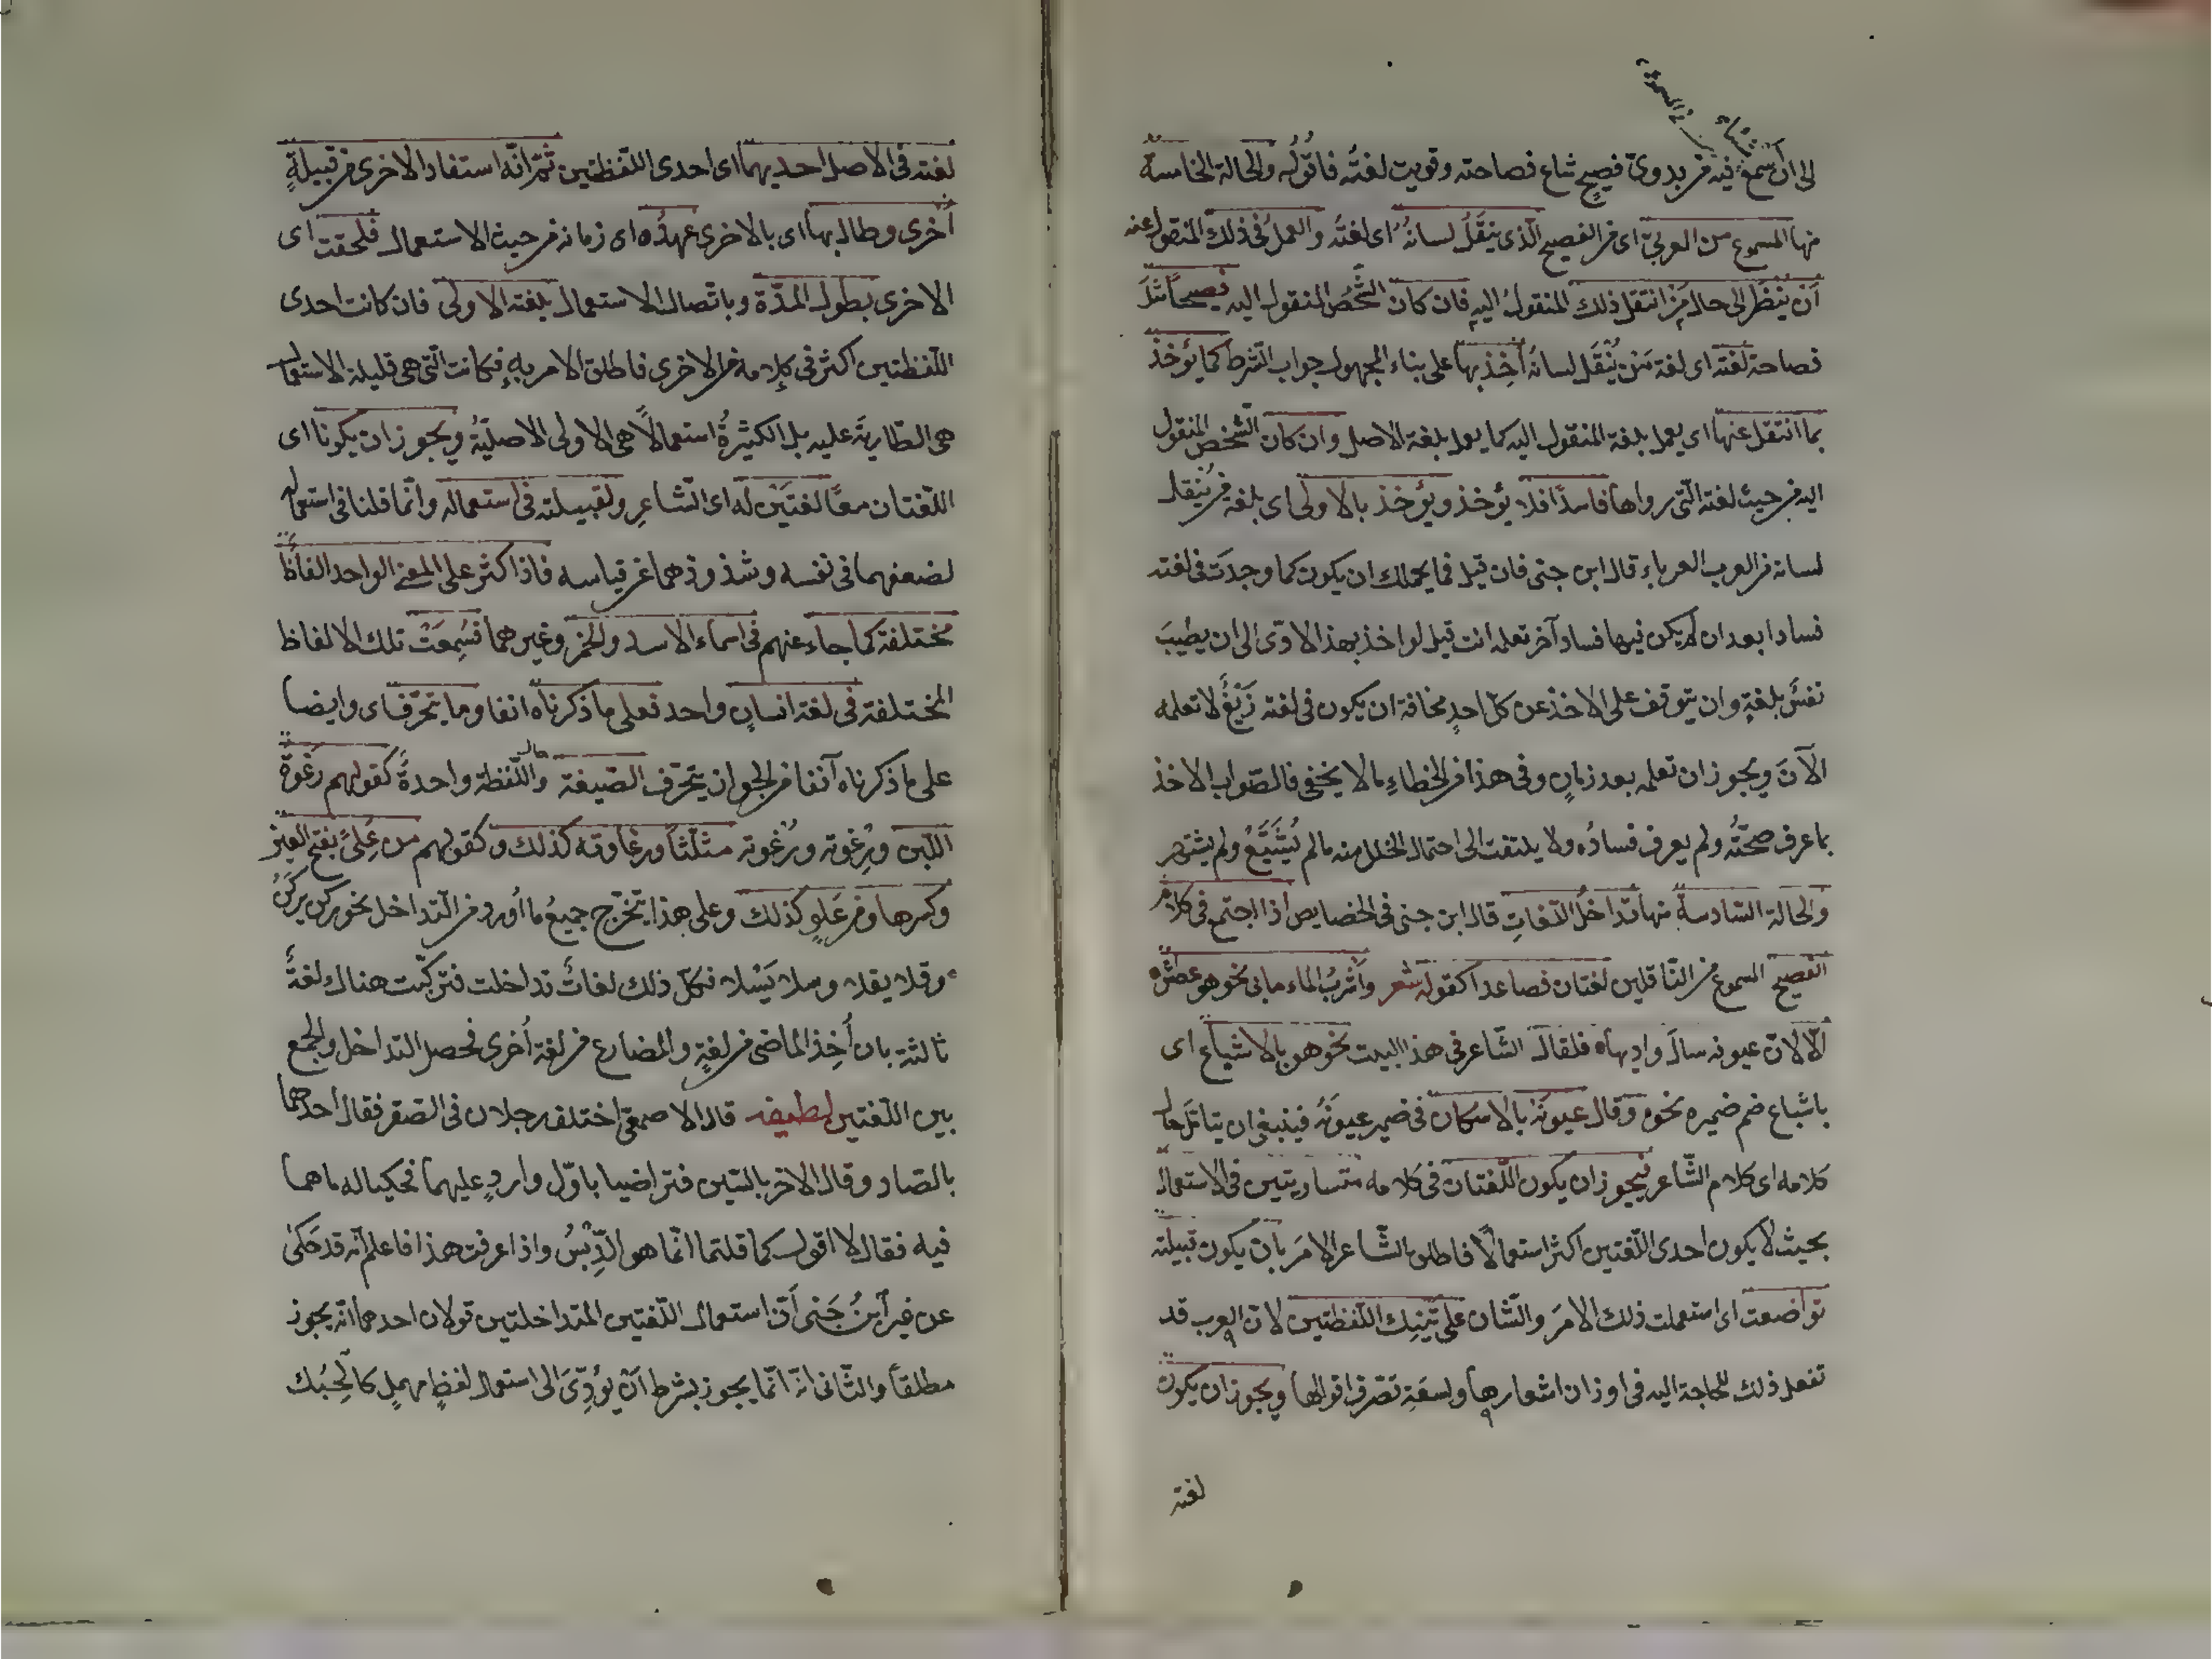 الى ان اسمع فيه من بدوى فصيح شاع فصاحته وقويت لغتُه فاقولُه والحالة الخامسة
منها المسموع من العربىّ اى من الفصيح الذى ينتقل لسانُه اى لغتُه والعملُ فى ذلك المنقول عنه
اَنْ ينظَر الى حال مَن انتقل ذلك المنقولُ اليه فان كان الشّخصُ المنقول اليه فصيحاً مثلَ
فصاحة لغته اى لغة مَنْ يُنْقَل لسانُه اُخِذ بها على بناء المجهول جواب الشرط كما يؤخذُ
بما انتقل عنها اى يعمل بلغة المنقول اليه كما يعمل بلغة الاصل وان كان الشّخص المنقول
اليه من حيث لغته الّتى رواها فاسدًا فلا يؤخذ ويؤخذ بالاولى اى بلغة من يُنقل
لسانه من العرب العرباء قال ابن جنى فان قيل فما يحملك ان يكون كما وجدَت فى لغته
فسادا بعد ان لم يكن فيها فساد آخر تعلمه انت قيل لو اخذ بهذا لادّى الى ان يطيبَ
نفسٌ بلغةٍ وان يتوقف على الاخذ عن كلّ احدٍ مخافة ان يكون فى لغته زَيْغٌ لا تعلمه
الآنَ ويجوز ان تعلمه بعد زمانٍ وفى هذا من الخطاءِ ما لا يخفى فالصّواب الاخذ
بما عرف صحّتُه ولم يعرف فسادُه ولا يلتفت الى احتمال الخلل منه ما لم يُتَتَبَّعْ ولم يشتهر
والحالة السّادسة منها تداخلُ اللّغاتِ قال ابن جنى فى الخصايص اذا اجتمع فى كلام
الفصيح المسموع من النّاقلين لغتان فصاعدا كقوله شعر وأشربُ الماء ما بى نحوهو عطش
الّا لانّ عيونه سالَ واديها فلقال الشّاعر فى هذا البيت نحوهو بالاشباع اى
باشباع ضم ضميره نحوه وقال عيونَهْ بالاسكان فى ضمير عيونَهْ فينبغى ان يتامّل حال
كلامه اى كلام الشّاعر فيجوز ان يكون اللّغتان فى كلامه متساويتين فى الاستعمال
بحيث لا يكون احدى اللّغتين اكثر استعمالًا فاطلق الشّاعر الامرَ بان يكون قبيلته
تواضعت اى استعملت ذلك الامرَ والشّان على تَيْنِك اللّفظتين لانّ العرب قد
تفعل ذلك للحاجة اليه فى اوزان اشعارها ولسعَةِ تصّرف اقوالها ويجوز ان يكون
لغته
لغته فى الاصل احديهما اى احدى اللّفظتين ثمّ انّه استفاد الاخرى من قبيلةٍ
اُخرى وطال بها اى بالاخرى عهدُه اى زمانه من حيث الاستعمال فلحقت اى
الاخرى بطول المدّة وباتّصال الاستعمال بلغته الاولى فان كانت احدى
اللّفظتين اكثر فى كلامه من الاخرى فاطلق الامر به فكانت الّتى هى قليلة الاستعمال
هى الطّارية عليه بل الكثيرةُ استعمالاً هى الاولى الاصليّةُ ويجوز ان يكونا اى
اللّغتان معًا لغتَيْن له اى الشّاعرِ ولقبيلته فى استعماله وانّما قلنا فى استعماله
لضعفهما فى نفسه وشذوذهما عن قياسه فاذا كثر على المعنى الواحد الفاظ
مختلفة كما جاء عنهم فى اسماء الاسد والخمر وغيرهما فسُمِعَتْ تلك الالفاظ
المختلفة فى لغة انسانٍ واحد فعلى ما ذكرناه انفا وما يتحّرف اى وايضا
على ما ذكرناه آنفا من الجواز يتحّرف الصّيغة والحال اللّفظة واحدةً كقولهم رَغوة
اللّبن ورِغوته ورُغوته مثلثاً ورغاوته كذلك وكقولهم من عُلِىً بفتح العين
وكسرها ومن عَلوٍ كذلك وعلى هذا يتخّرج جميعُ ما اُورد من التّداخل نحو ركن يركَنُ
وقلا يقلا وسلا يَسْلا فكلّ ذلك لغاتٌ تداخلت فتركّبت هناك لغةٌ
ثالثة بان اُخِذ الماضى من لغةٍ والمضارع من لغة اُخرى فحصل التداخل والجمع
بين اللّغتين لطيفه قال الاصمعى اختلف رجلان فى الصّقر فقال احدهما
بالصّاد وقال الاخر بالسّين فتراضيا باوّل واردٍ عليهما فحكيا له ما هما
فيه فقال لا اقول كما قلتما انّما هو الزّقر واذا عرفت هذا فاعلم انّه قد حَكى
عن غير ابنُ جَنى اَنّ استعمال اللّغتين المتداخلتين قولان احدهما انّه يجوز
مطلقاً والثّانى انّه انّما يجوز بشرط اَنْ يؤدّىَ الى استعمال لفظٍ مهملٍ كالحِبُك